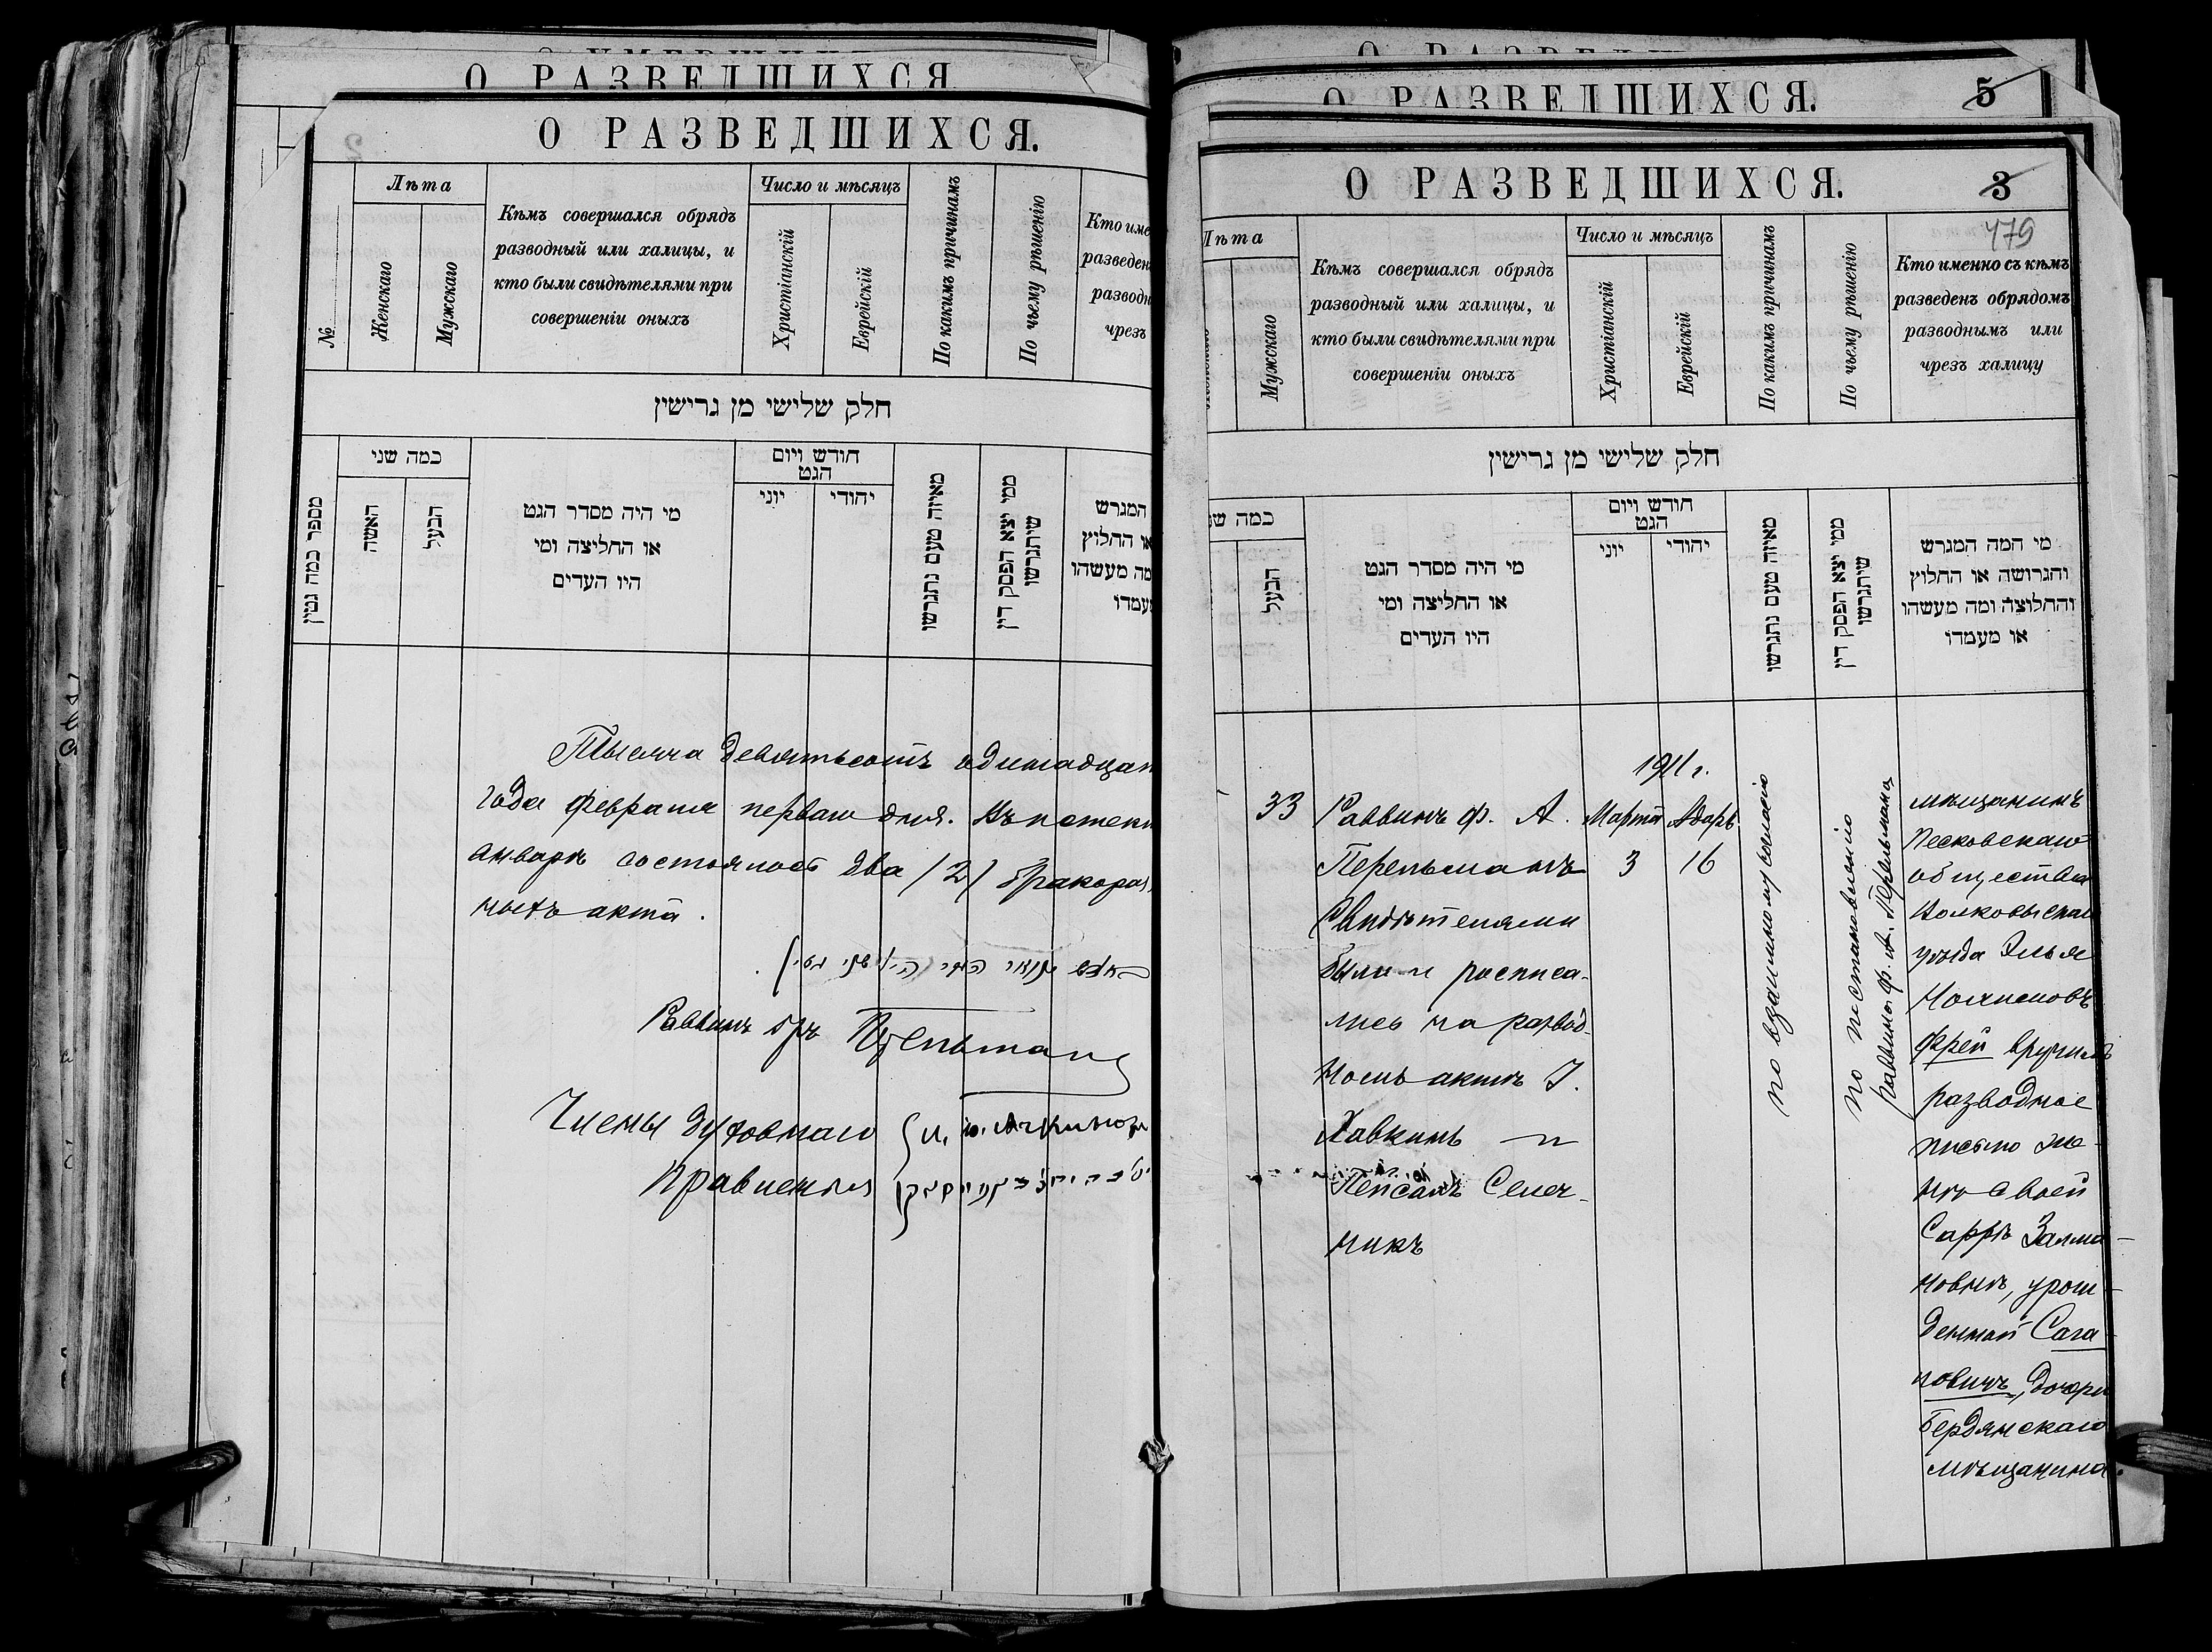 О РАЗВЕДШИХСЯ
О РАЗВЕДШИХСЯ.
№
Лѣта
Женскаго
Мужскаго
Кѣмъ совершался обрядъ
разводный или халицы, и
кто были свидѣтелями при
совершеніи оныхъ
Число и мѣсяцъ
Христіанскій
Еврейскій
По какимъ причинамъ
По чьему рѣшенію
Кто име
разведен
разводн
чрезъ
חלק שלישי מן גרישין
מספר כמה גטין
כמה שני
האשה
הבעל
מי היה מסדר הגט
או החליצה ומי
היו העדים
חודש ויום
הגט
יוני
יהודי
מאיזה טעם נתגרשו
ממי יצא הפסק דין
שיתגרשו
המגרש
או החלוץ
מה מעשהו
מעמדו
Тысяча девятьсотъ одинадцат
года февраля перваго дня. Въ истекш
январѣ состоялось два /2/ бракораз
ныхъ акта.
Раввинъ
Перельманъ
Члены духовнаго
Правленія
О РАЗВЕДШИХСЯ.
5
О РАЗВЕДШИХСЯ.
3
479
Лѣта
Мужскаго
Кѣмъ совершался обрядъ
разводный или халицы, и
кто были свидѣтелями при
совершеніи оныхъ
Число и мѣсяцъ
Христіанскій
Еврейскій
По какимъ причинамъ
По чьему рѣшенію
Кто именно съ кѣмъ
разведенъ обрядомъ
разводнымъ или
чрезъ халицу
חלק שלישי מן גרישין
כמה ש
הבעל
מי היה מסדר הגט
או החליצה ומי
היו העדים
חודש ויום
הגט
יוני
יהודי
מאיזה טעם נתגרשו
ממי יצא הפסק דין
שיתגרשו
מי המה המגרש
והגרושה או החלוץ
והחלוצה ומה מעשהו
או מעמדו
33
Раввинъ Ф. А.
Перельманъ
Свидѣтелями
были и росписа-
лись на развод-
номъ актѣ I.
Хавкинъ и
Пейсахъ Селеч-
никъ
1911 г.
Марта
3
Адаръ
16
по взаимному согласію
по постановленію
раввина Ф. А. Перельмана
мѣщанинъ
Песковскаго
общества
Волковыскаго
уѣзда Элья
Фрей вручилъ
разводное
письмо же-
нѣ своей
Саррѣ Залма-
новнѣ, урож-
денной Сага-
ловичъ, дочери
бердянскаго
мѣщанина.